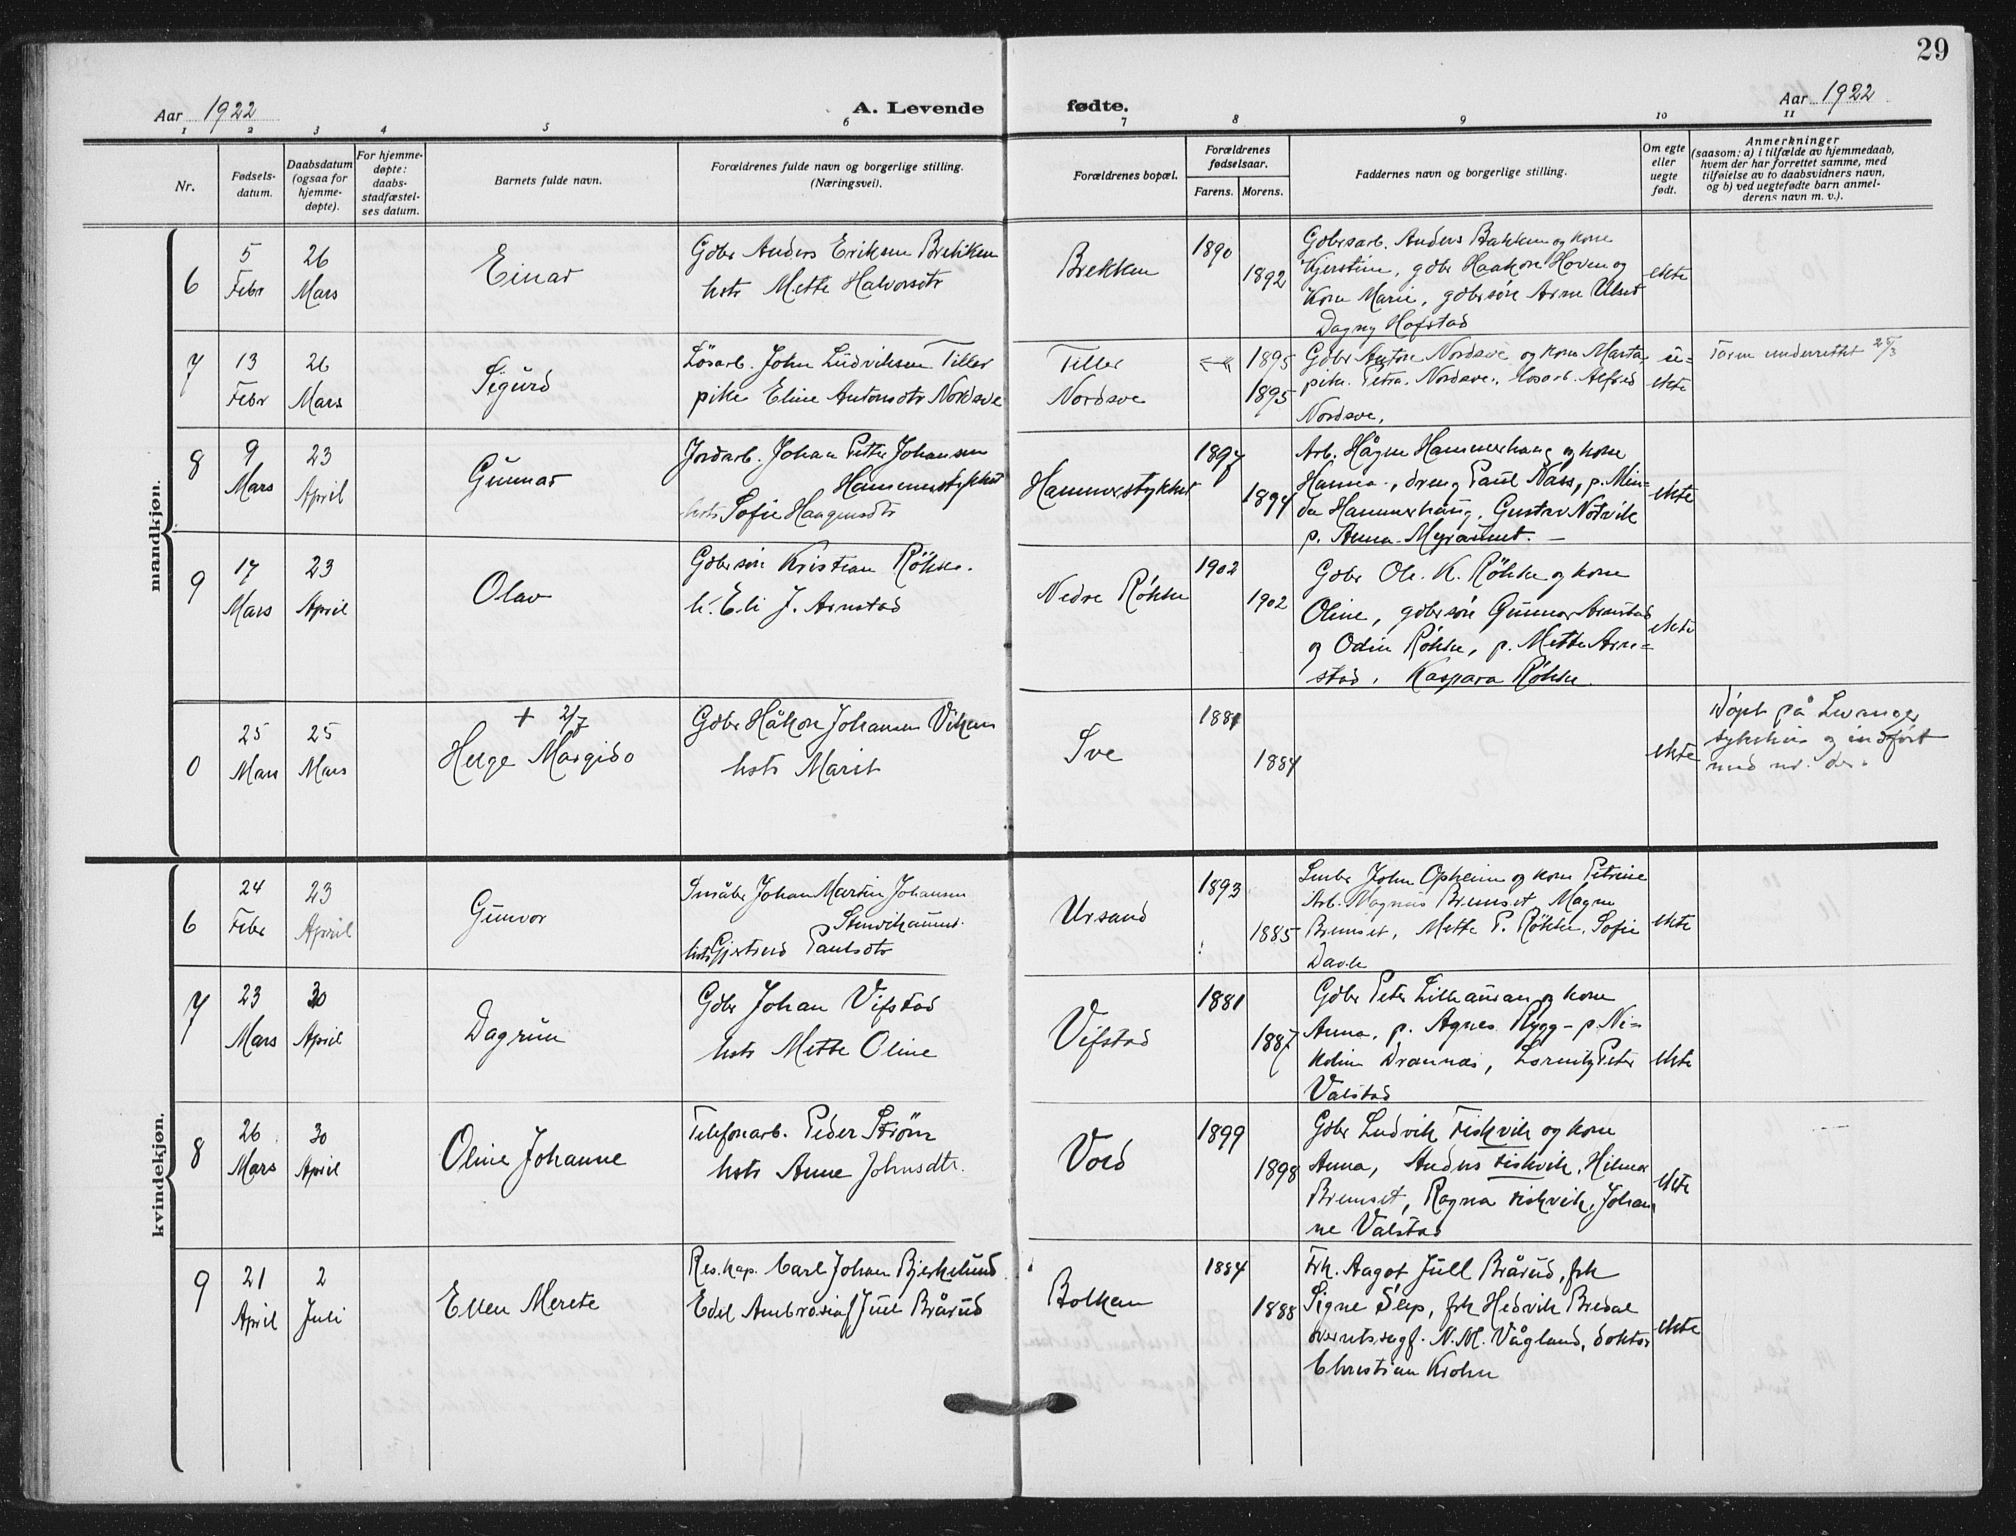 29
Aar 1922
A. Levende
fødte.
Aar 1922
1 2 3 4 5 6 7 8 9 10 11
Nr.
Fødsels-
datum.
Daabsdatum
(ogsaa for
hjemme-
døpte).
For hjemme-
døpte:
daabs-
stadfæstel-
ses datum.
Barnets fulde navn.
Forældrenes fulde navn og borgerlige stilling.
(Næringsvei).
Forældrenes bopæl.
Forældrenes
fødselsaar.
Farens. Morens.
Faddernes navn og borgerlige stilling.
Om egte
eller
uegte
født.
Anmerkninger
(saasom: a) i tilfælde av hjemmedaab,
hvem der har forrettet samme, med
tilføielse av to daabsvidners navn,
og b) ved uegtefødte barn anmel-
derens navn m. v.).
mandkjøn.
6
5
Febr
26
Mars
Einar
Gdbr Anders Eriksen Brekken
hstr Mette Halvorsdtr
Brekken
1890
1892
Gdbrsarb. Anders Bakken og kone
Kjerstine, gdbr Haakon Hoven og
Kone Marie, gdbrsøn Arne Ulset
Dagny Hofstad
ekte
7
13
Febr
26
Mars
Sigurd
Løsarb. John Ludviksen Tiller
pike Eline Antonsdtr Nordsve
Tiller
Nordsve
1895
1895
Gdbr Anton Nordsve og kone Marta,
pike Petra Nordsve, losarb. Alfred
Nordsve.
u-
ekte
Faren underrettet 25/3
8
9
Mars
23
April
Gunnar
Jordarb. Johan Petter Johansen
Hammerstykket
hstr Sofie Haagensdtr
Hammerstykket
1897
1894
Arb. Hågen Hammerhaug og kone
Hanna, dreng Paul Næss, p. Min-
da Hammerhaug, Gustav Notvik
p. Anna Myraunet. –
ekte
9
17
Mars
23
April
Olav
Gdbrsøn Kristian Røkke.
h. Eli J. Arnstad
Nedre Røkke
1902
1902
Gdbr Ole K. Røkke og kone
Oline, gdbrsøn Gunnar Arnstad
og Odin Røkke, p. Mette Arn-
stad, Kaspara Røkke.
ekte
0
25
Mars
25
Mars
+ 2/7
Helge Margido
Gdbr Håkon Johansen Viken
hstr Marit
Sve
1881
1884
ekte
Døpt på Levanger
sykehus og indført
med nr. der.
kvindekjøn.
6
24
Febr
23
April
Gunvor
Småbr Johan Martin Johansen
Stenvikaunet.
hstr Gjertrud Paulsdtr
Ursand
1893
1885
Smbr John Opheim og kone Petrine
Arb. Magnus Bremset, Magne
Bremset, Mette P. Røkke, Sofie
Davle
ekte
7
23
Mars
30
April
Dagrun
Gdbr Johan Vifstad
hstr Mette Oline
Vifstad
1881
1887
Gdbr Peter Lillemoran og kone
Anna, p. Agnes Rygg – p. Ni-
koline Draunes, Peter
Valstad
ekte
8
26
Mars
30
April
Oline Johanne
Telefonarb. Peder Strøm
hstr Anne Johnsdtr.
Vold
1899
1898
Gdbr Ludvik Fiskvik og kone
Anna, Anders Fiskvik, Hilmar
Bremset, Ragna Fiskvik, Johan-
ne Valstad
ekte
9
21
April
2
Juli
Ellen Merete
Res. kap. Carl Johan Bjerkelund
Edel Ambrosia f. Juel Brårud
Bolkan
1884
1888
Frk. Aagot Jull Brårud, frk
Signe Slep, frk Hedvik Bredal
overretssagf. N. M. Vågland, doktor
Christian Krohn
ekte